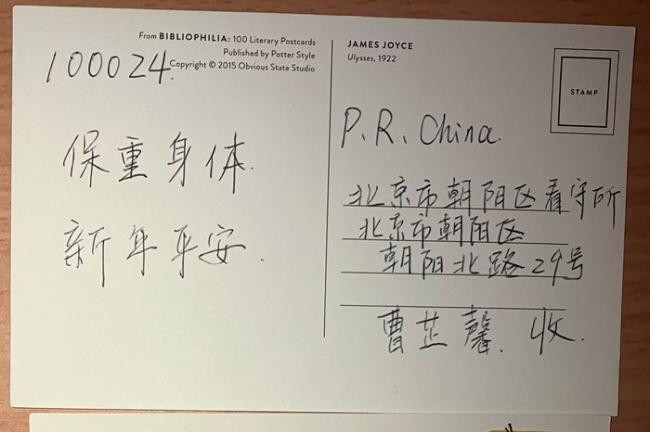 From BIBLIOPHILIA: 100 Literary Postcards
Published by Potter Style
Copyright © 2015 Obvious State Studio
100024.
保重身体.
新年平安.
JAMES JOYCE
Ulysses, 1922
STAMP
P.R. China.
北京市朝阳区看守所
北京市朝阳区
朝阳北路29号
曹芷馨. 收.